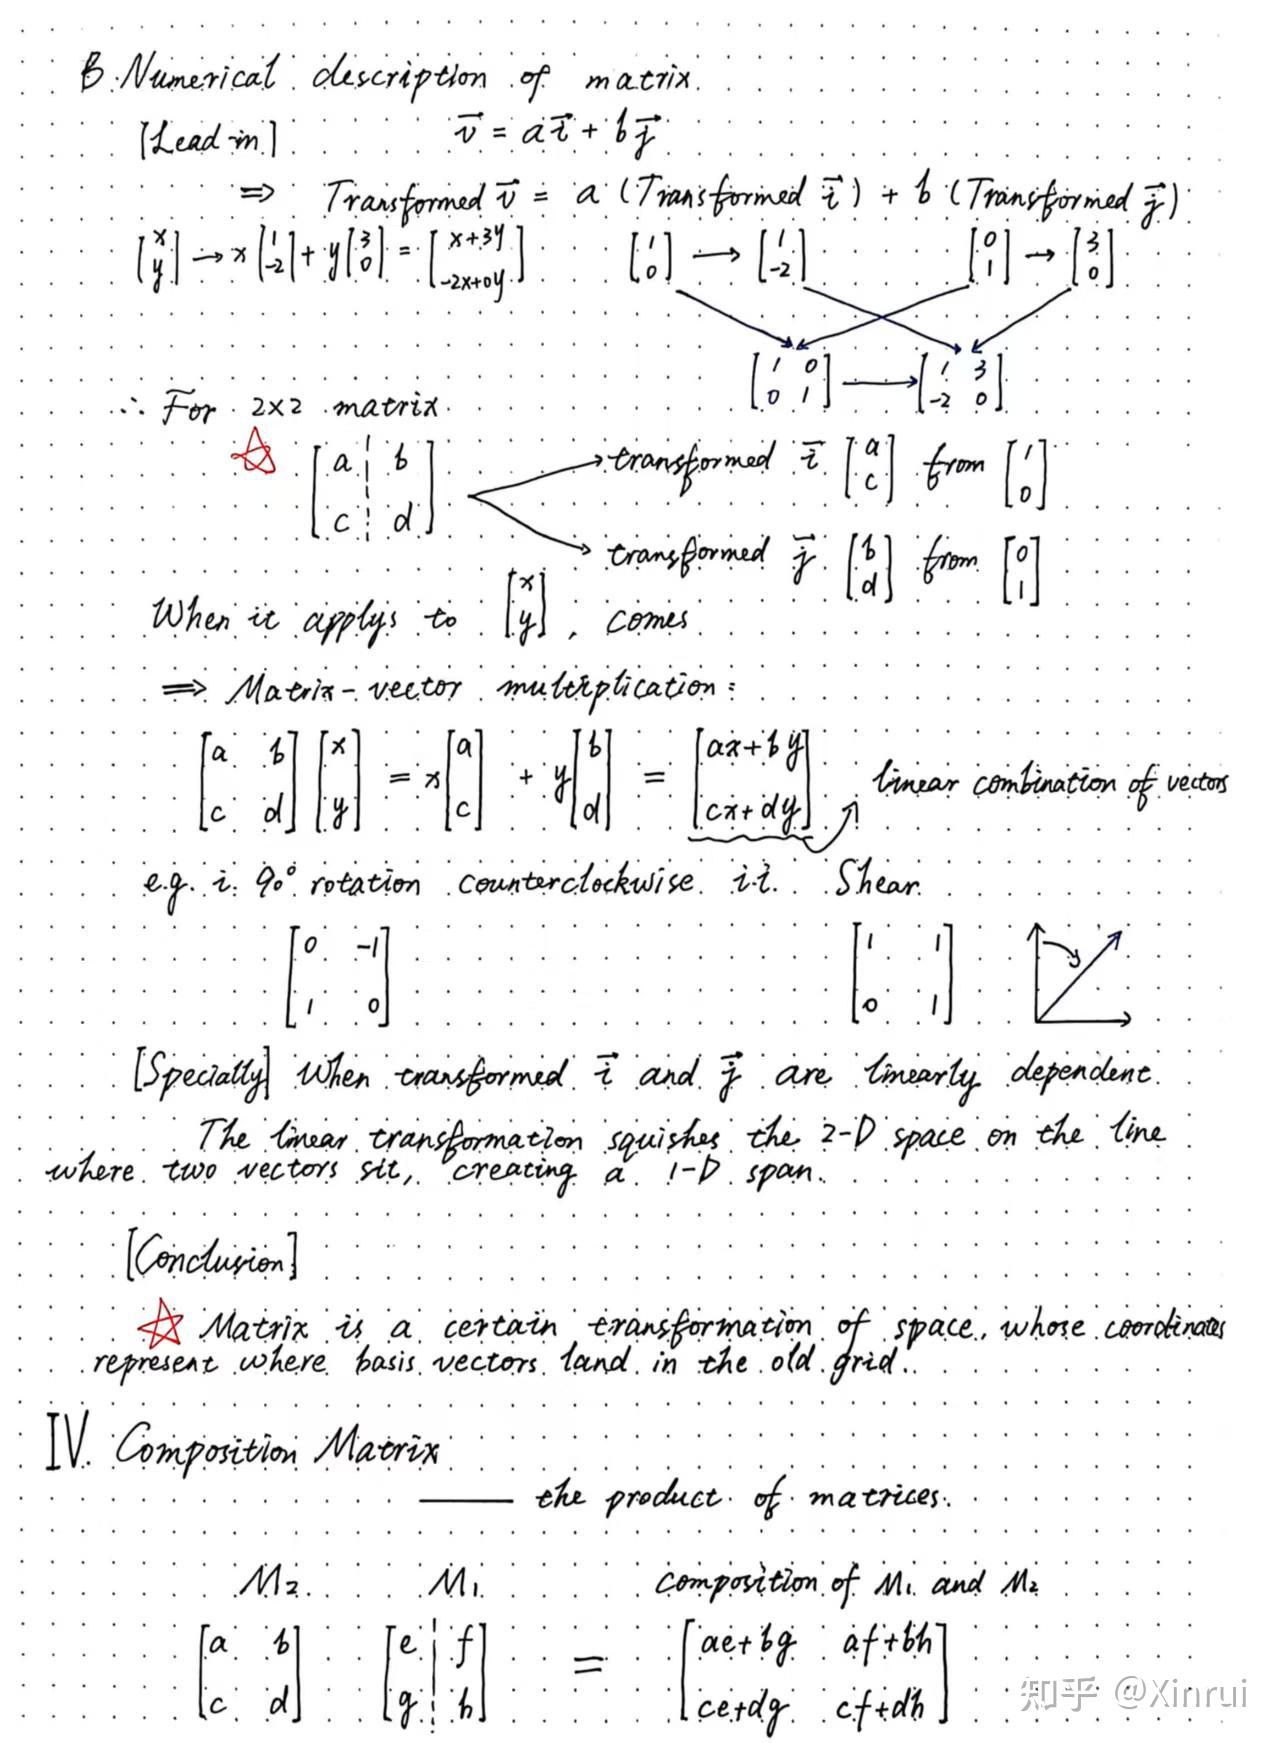 B. Numerical description of matrix.
[Lead-in] v⃗ = a i⃗ + b j⃗
⇒ Transformed v⃗ = a (Transformed i⃗) + b (Transformed j⃗)
[x; y] → x [1; -2] + y [3; 0] = [x+3y; -2x+0y] [1; 0] → [1; -2] [0; 1] → [3; 0]
[1 0; 0 1] → [1 3; -2 0]
∴ For 2×2 matrix.
☆ [a b; c d] → transformed i⃗ [a; c] from [1; 0]
→ transformed j⃗ [b; d] from [0; 1]
When it applys to [x; y], comes
⇒ Matrix-vector multiplication:
[a b; c d] [x; y] = x [a; c] + y [b; d] = [ax+by; cx+dy] linear combination of vectors
e.g. i. 90° rotation counterclockwise. i.i. Shear.
[0 -1; 1 0] [1 1; 0 1]
[Specially] When transformed i⃗ and j⃗ are linearly dependent.
The linear transformation squishes the 2-D space on the line
where two vectors sit, creating a 1-D span.
[Conclusion]
☆ Matrix is a certain transformation of space, whose coordinates
represent where basis vectors land in the old grid.
IV. Composition Matrix
—— the product of matrices.
M₂ M₁ composition of M₁ and M₂
[a b; c d] [e f; g h] = [ae+bg af+bh; ce+dg cf+dh]
知乎 @Xinrui